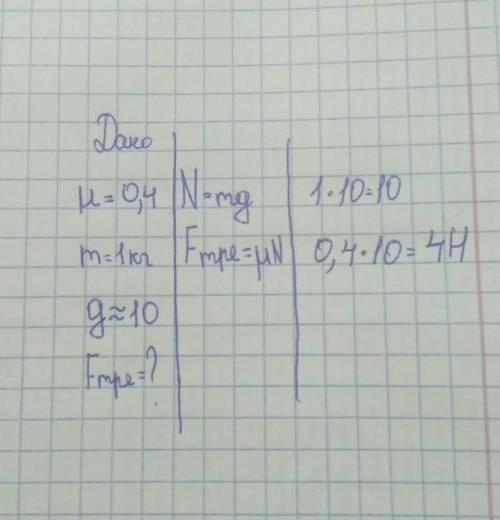 Дано
μ = 0,4
m = 1кг
g ≈ 10
Fтре = ?
N = mg
Fтре = μN
1 · 10 = 10
0,4 · 10 = 4Н